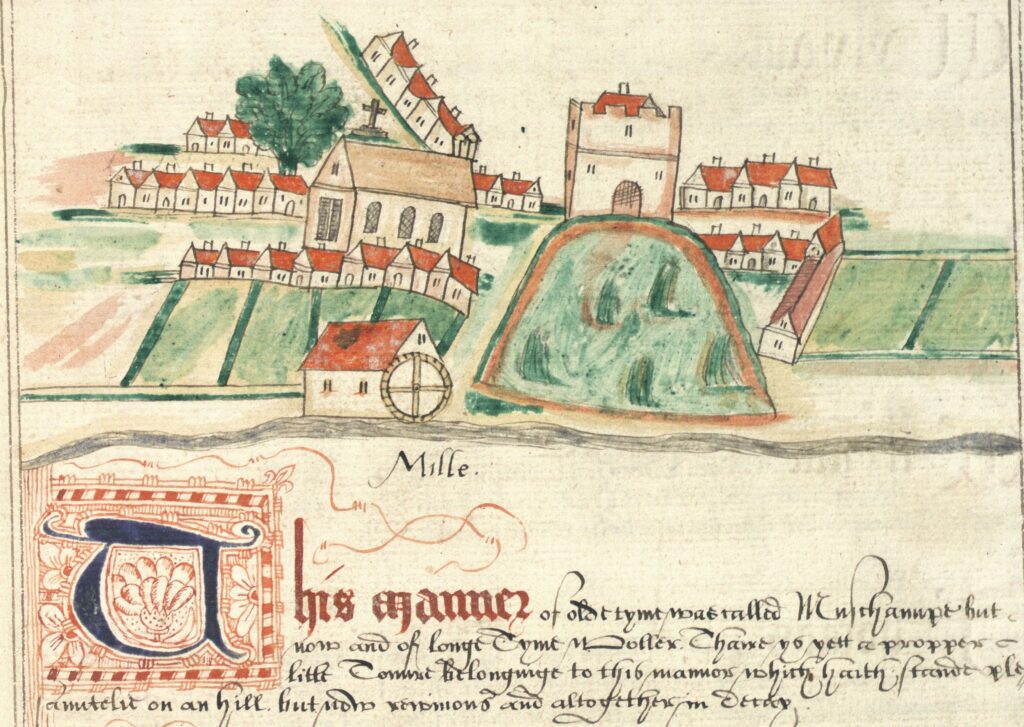 Mille.
This Manner of olde tyme was called Muschampe but
now and of longe Tyme Woller. Thaire ys yett a propper
litle Towre belonginge to this mannor which haith stande ple
asauntelie on an hill. but now rewinous and altogether in decay